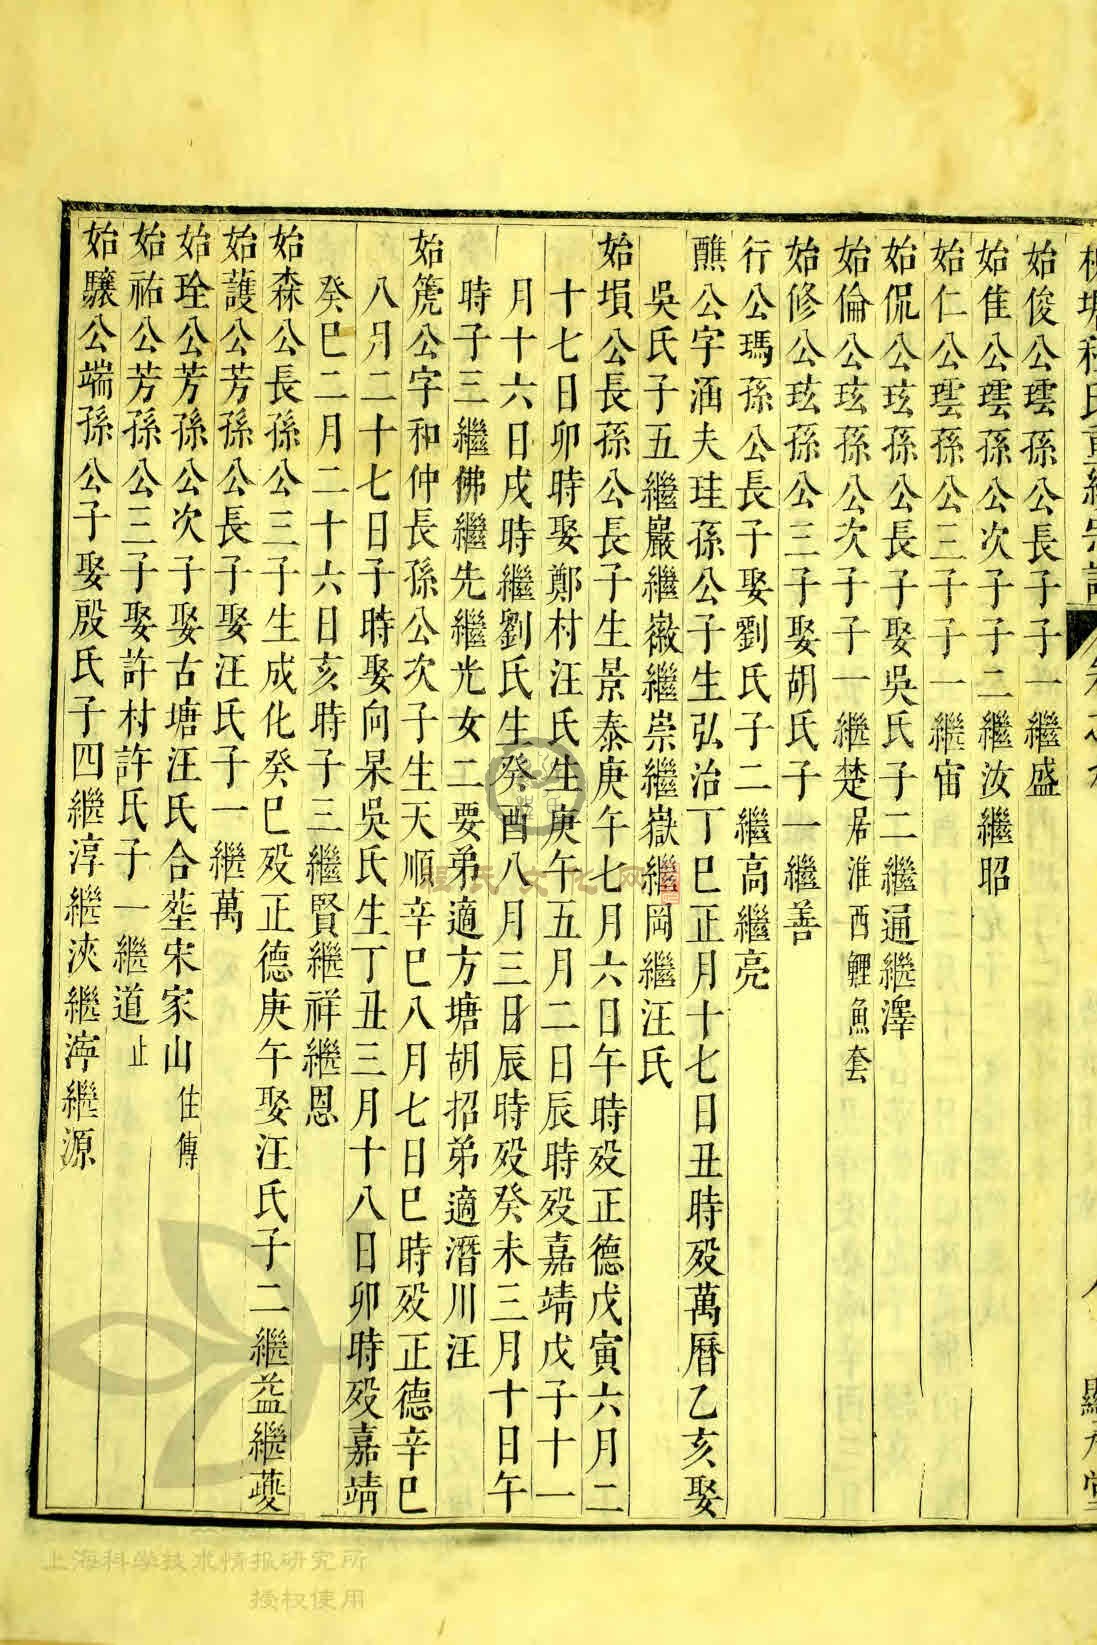 始俊公璴孫公長子子一繼盛
始隹公璴孫公次子子二繼汝繼昭
始仁公璴孫公三子子一繼宙
始侃公玹孫公長子娶吳氏子二繼通繼澤
始倫公玹孫公次子子一繼楚居淮西鯉魚套
始修公玹孫公三子娶胡氏子一繼善
行公瑪孫公長子娶劉氏子二繼高繼亮
醮公字涵夫珪孫公子生弘治丁巳正月十七日丑時殁萬曆乙亥娶
吳氏子五繼巖繼嶶繼崇繼嶽繼岡繼汪氏
始塤公長孫公長子生景泰庚午七月六日午時殁正德戊寅六月二
十七日卯時娶鄭村汪氏生庚午五月二日辰時殁嘉靖戊子十一
月十六日戌時繼劉氏生癸酉八月三日辰時殁癸未三月十日午
時子三繼佛繼先繼光女二要弟適方塘胡招弟適潛川汪
始箎公字和仲長孫公次子生天順辛巳八月七日巳時殁正德辛巳
八月二十七日子時娶向杲吳氏生丁丑三月十八日卯時殁嘉靖
癸巳二月二十六日亥時子三繼賢繼祥繼恩
始森公長孫公三子生成化癸巳殁正德庚午娶汪氏子二繼益繼夔
始護公芳孫公長子娶汪氏子一繼萬
始琻公芳孫公次子娶古塘汪氏合塟宋家山 住傳
始祐公芳孫公三子娶許村許氏子一繼道止
始驤公端孫公子娶殷氏子四繼淳繼浹繼濘繼源
上海科學技术情报研究所
授权使用